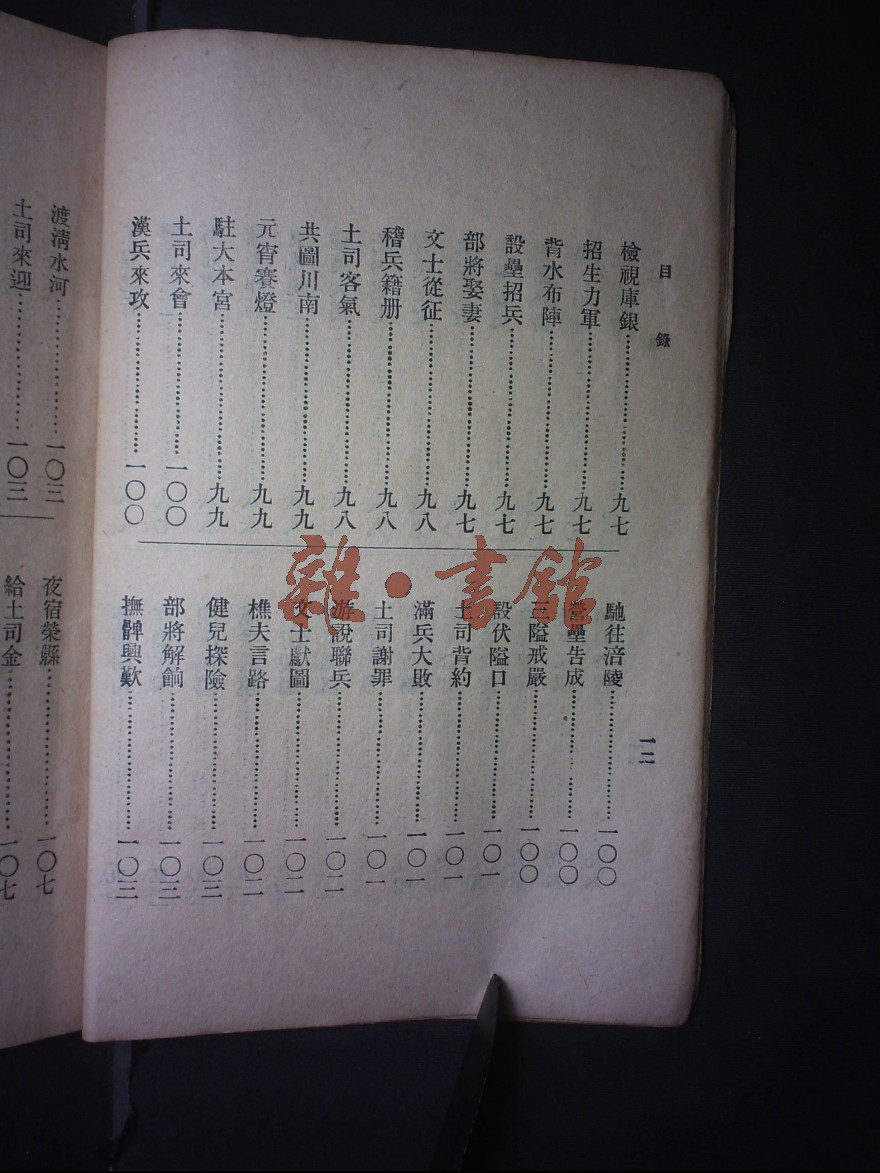 目錄
檢視庫銀⋯⋯九七
招生力軍⋯⋯九七
背水布陣⋯⋯九七
設壘招兵⋯⋯九七
部將娶妻⋯⋯九七
文士從征⋯⋯九八
稽兵籍册⋯⋯九八
土司客氣⋯⋯九八
共圖川南⋯⋯九九
元宵賽燈⋯⋯九九
駐大本宮⋯⋯九九
土司來會⋯⋯一〇〇
漢兵來攻⋯⋯一〇〇
馳往涪陵⋯⋯一〇〇
營壘告成⋯⋯一〇〇
三隘戒嚴⋯⋯一〇〇
設伏隘口⋯⋯一〇一
土司背約⋯⋯一〇一
滿兵大敗⋯⋯一〇一
土司謝罪⋯⋯一〇一
游說聯兵⋯⋯一〇二
文士獻圖⋯⋯一〇二
樵夫言路⋯⋯一〇二
健兒探險⋯⋯一〇三
部將解餉⋯⋯一〇三
撫髀興歎⋯⋯一〇三
一二
渡淸水河⋯⋯一〇三
土司來迎⋯⋯一〇三
夜宿榮縣⋯⋯一〇七
給土司金⋯⋯一〇七
雜·書館